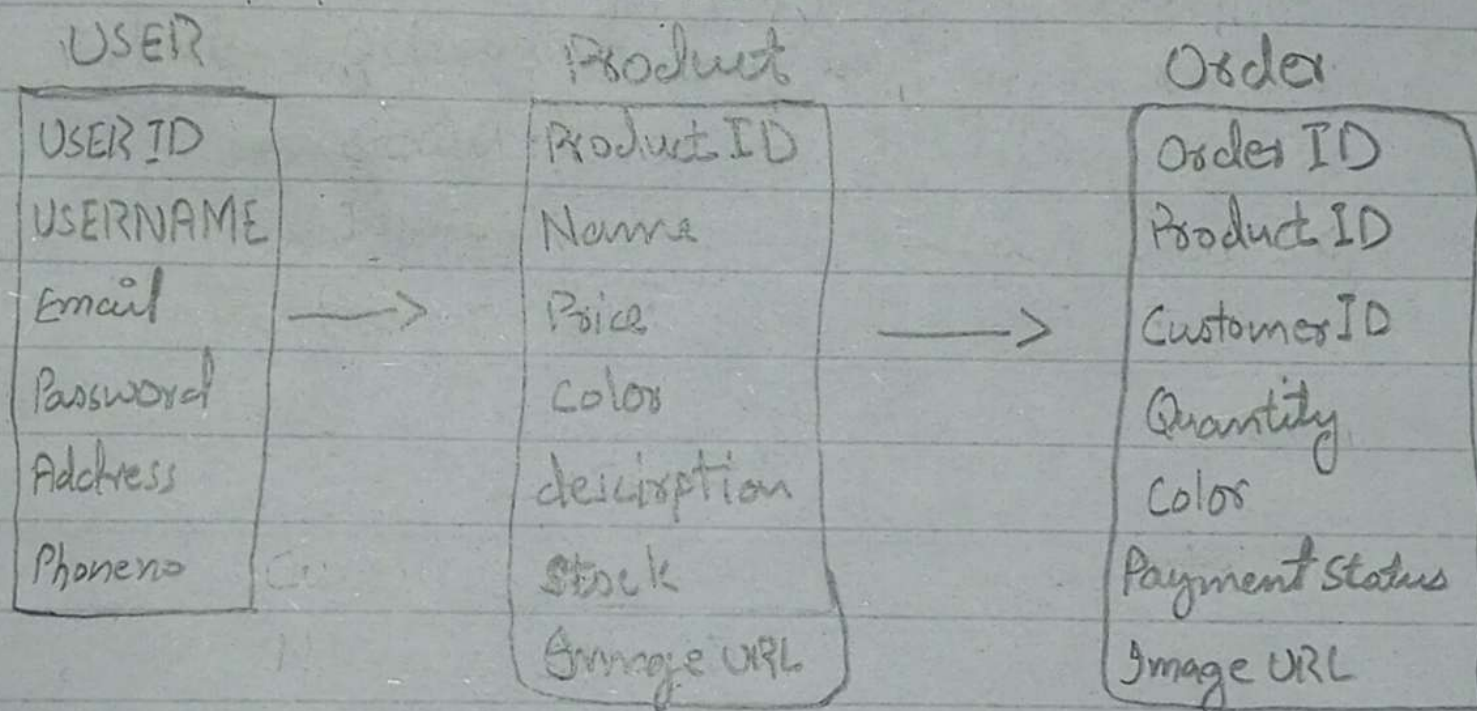 USER
USER ID
USERNAME
Email
Password
Address
Phoneno
Product
Product ID
Name
Price
Color
descirption
Stock
Immage URL
Order
Order ID
Product ID
Customer ID
Quantity
Color
Payment Status
Image URL